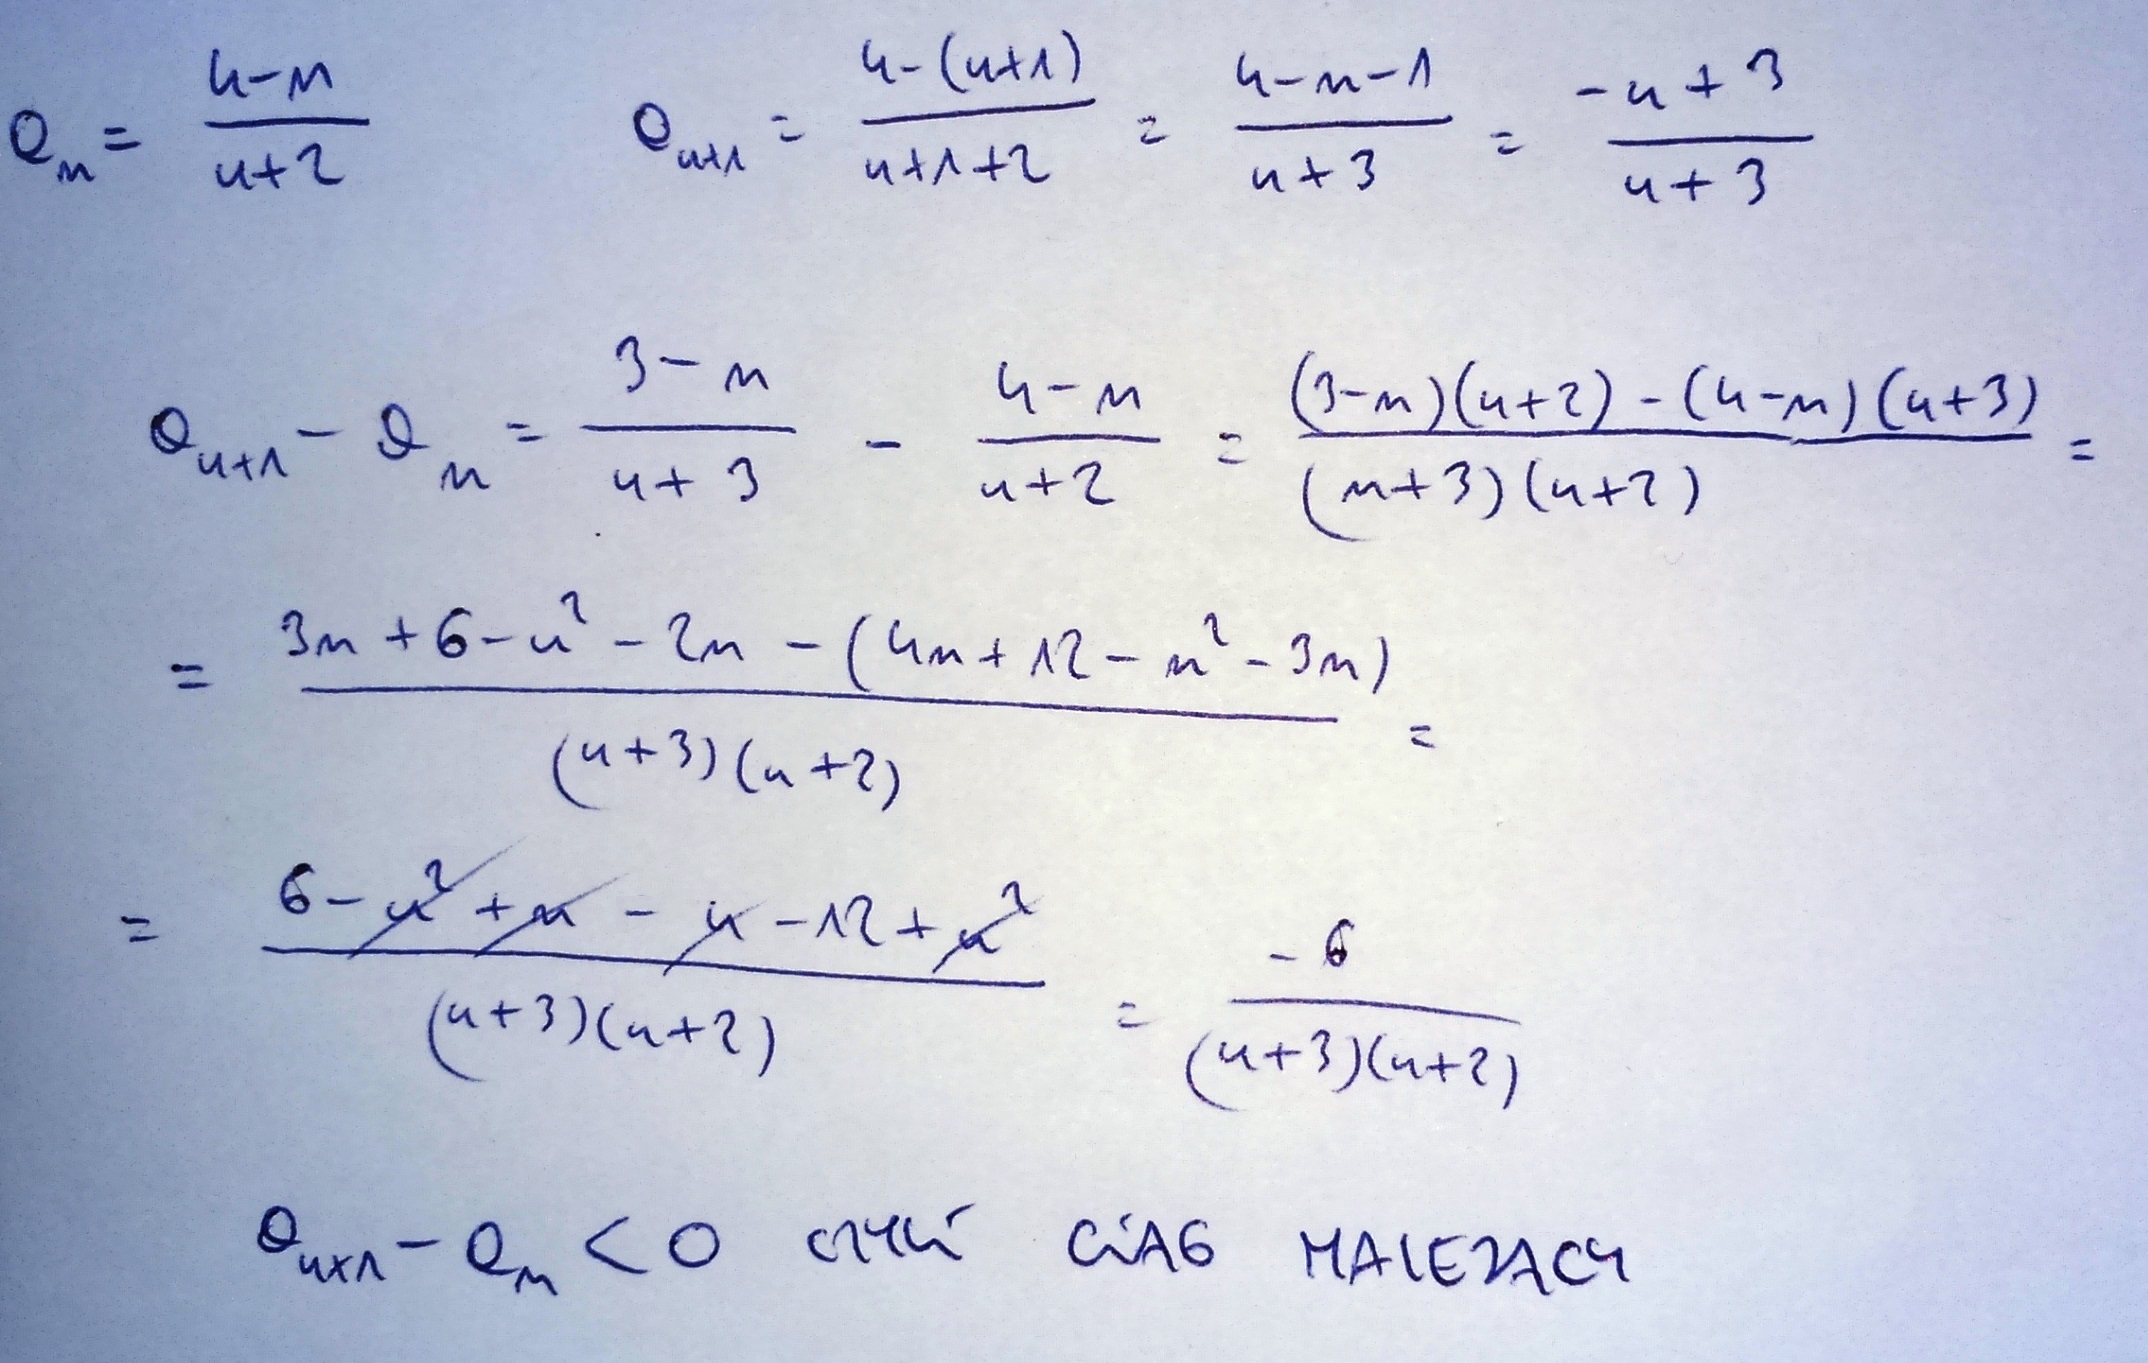 a_n = (4-n)/(n+2)   a_{n+1} = (4-(n+1))/(n+1+2) = (4-n-1)/(n+3) = (-n+3)/(n+3)
a_{n+1} - a_n = (3-n)/(n+3) - (4-n)/(n+2) = ((3-n)(n+2)-(4-n)(n+3))/((n+3)(n+2)) =
= (3n+6-n²-2n-(4n+12-n²-3n))/((n+3)(n+2)) =
= (6-n²+n-n-12+n²)/((n+3)(n+2)) = -6/((n+3)(n+2))
a_{n+1} - a_n < 0 czyli CiAG MALEJACY